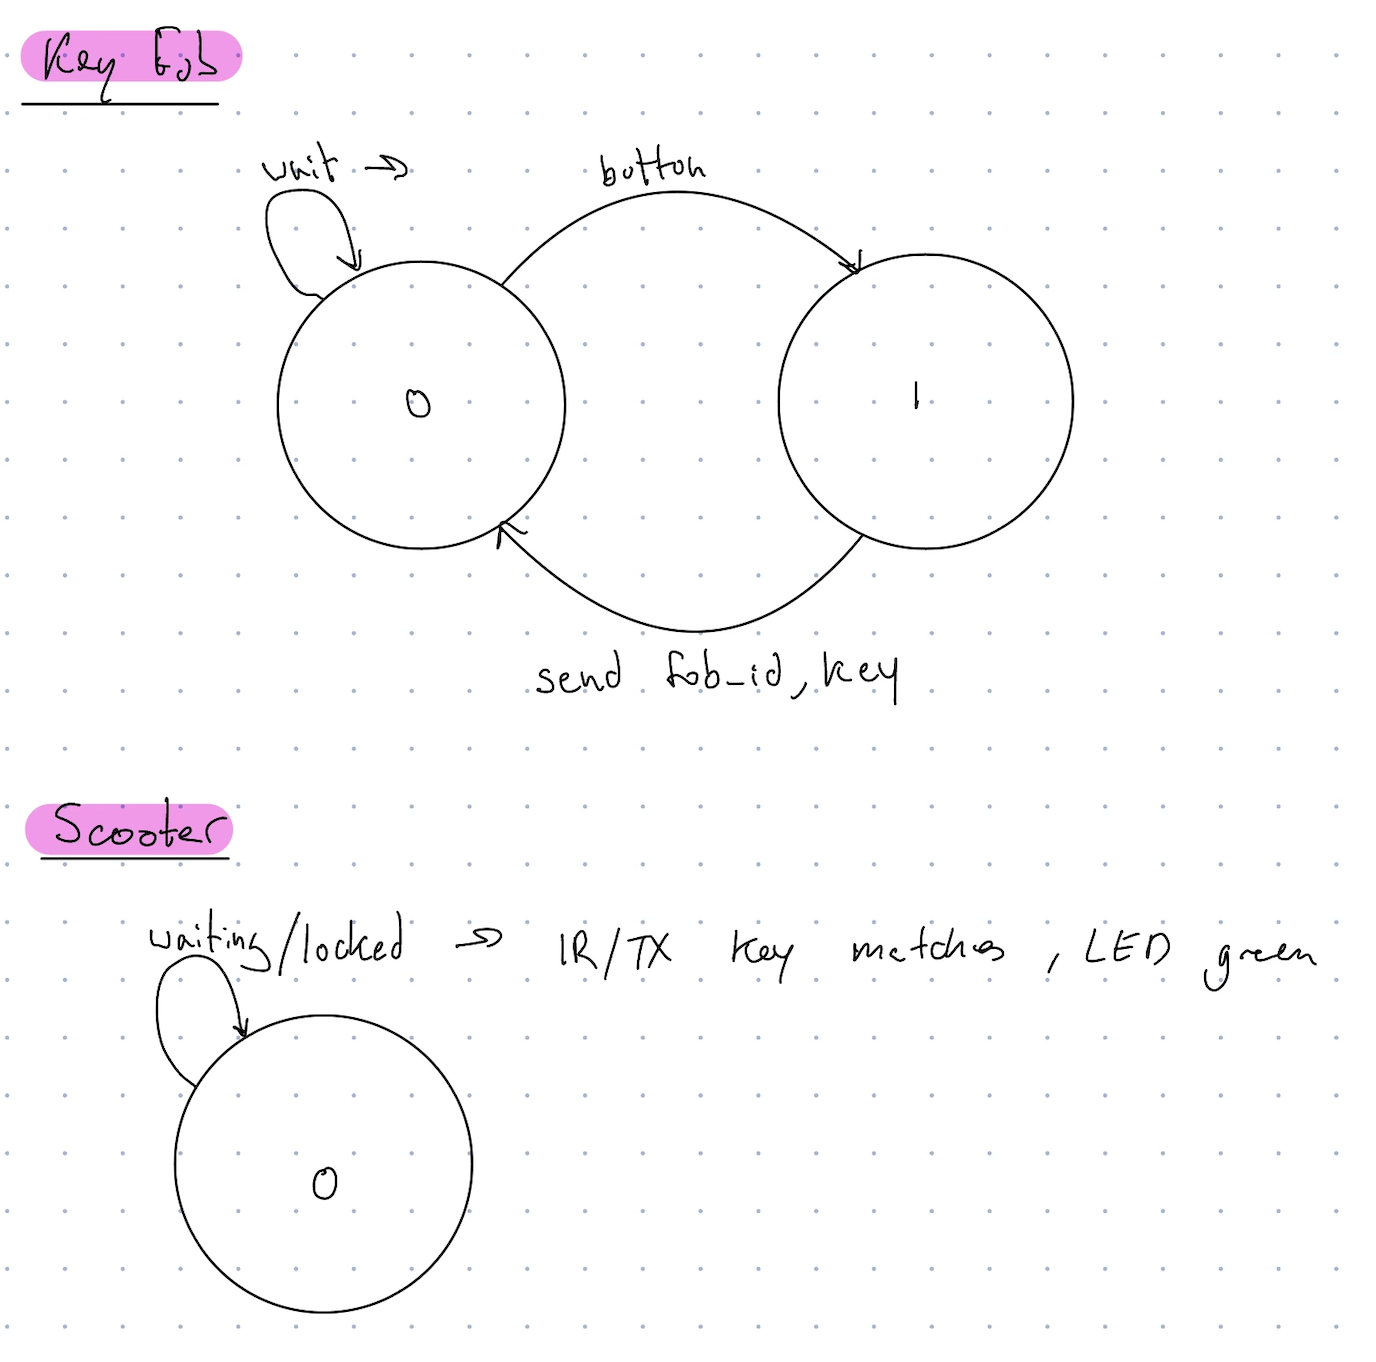 Key Fob
wait →
button
0
1
send fob_id, key
Scooter
waiting/locked → IR/TX key matches, LED green
0